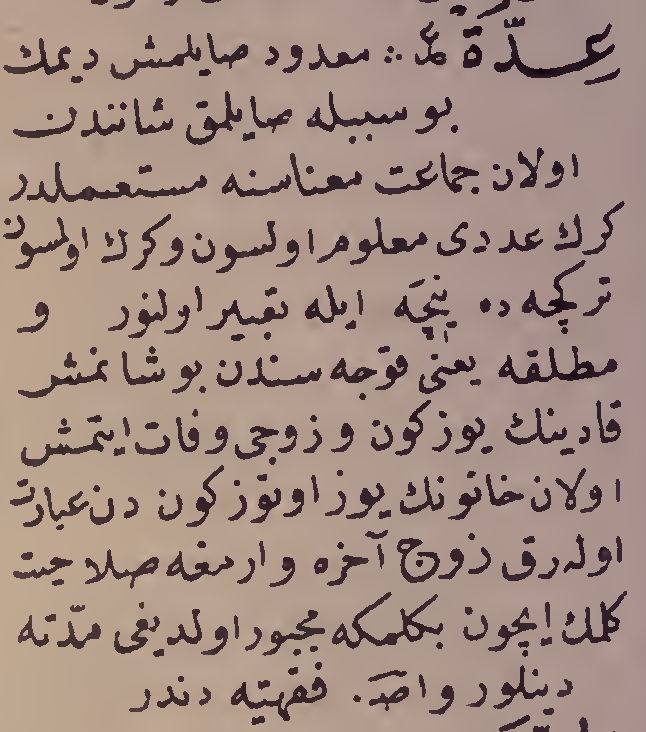 عِدّة ع ∴ معدود صايلمش ديمك
بو سببله صايلمق شانندن
اولان جماعت معناسنه مستعملدر
كرك عددى معلوم اولسون وكرك اولمسون
تركچه ده نيچَه ايله تعبير اولنور و
مطلقه يعنى قوجه سندن بوشانمش
قادينك يوز كون و زوجى وفات ايتمش
اولان خاتونك يوز اوتوز كون دن عبارت
اوله رق زوج آخره وارمغه صلاحيت
كلمك ايچون بكلمكه مجبور اولديغى مدّته
دينلور واصـ. فقهيه دندر